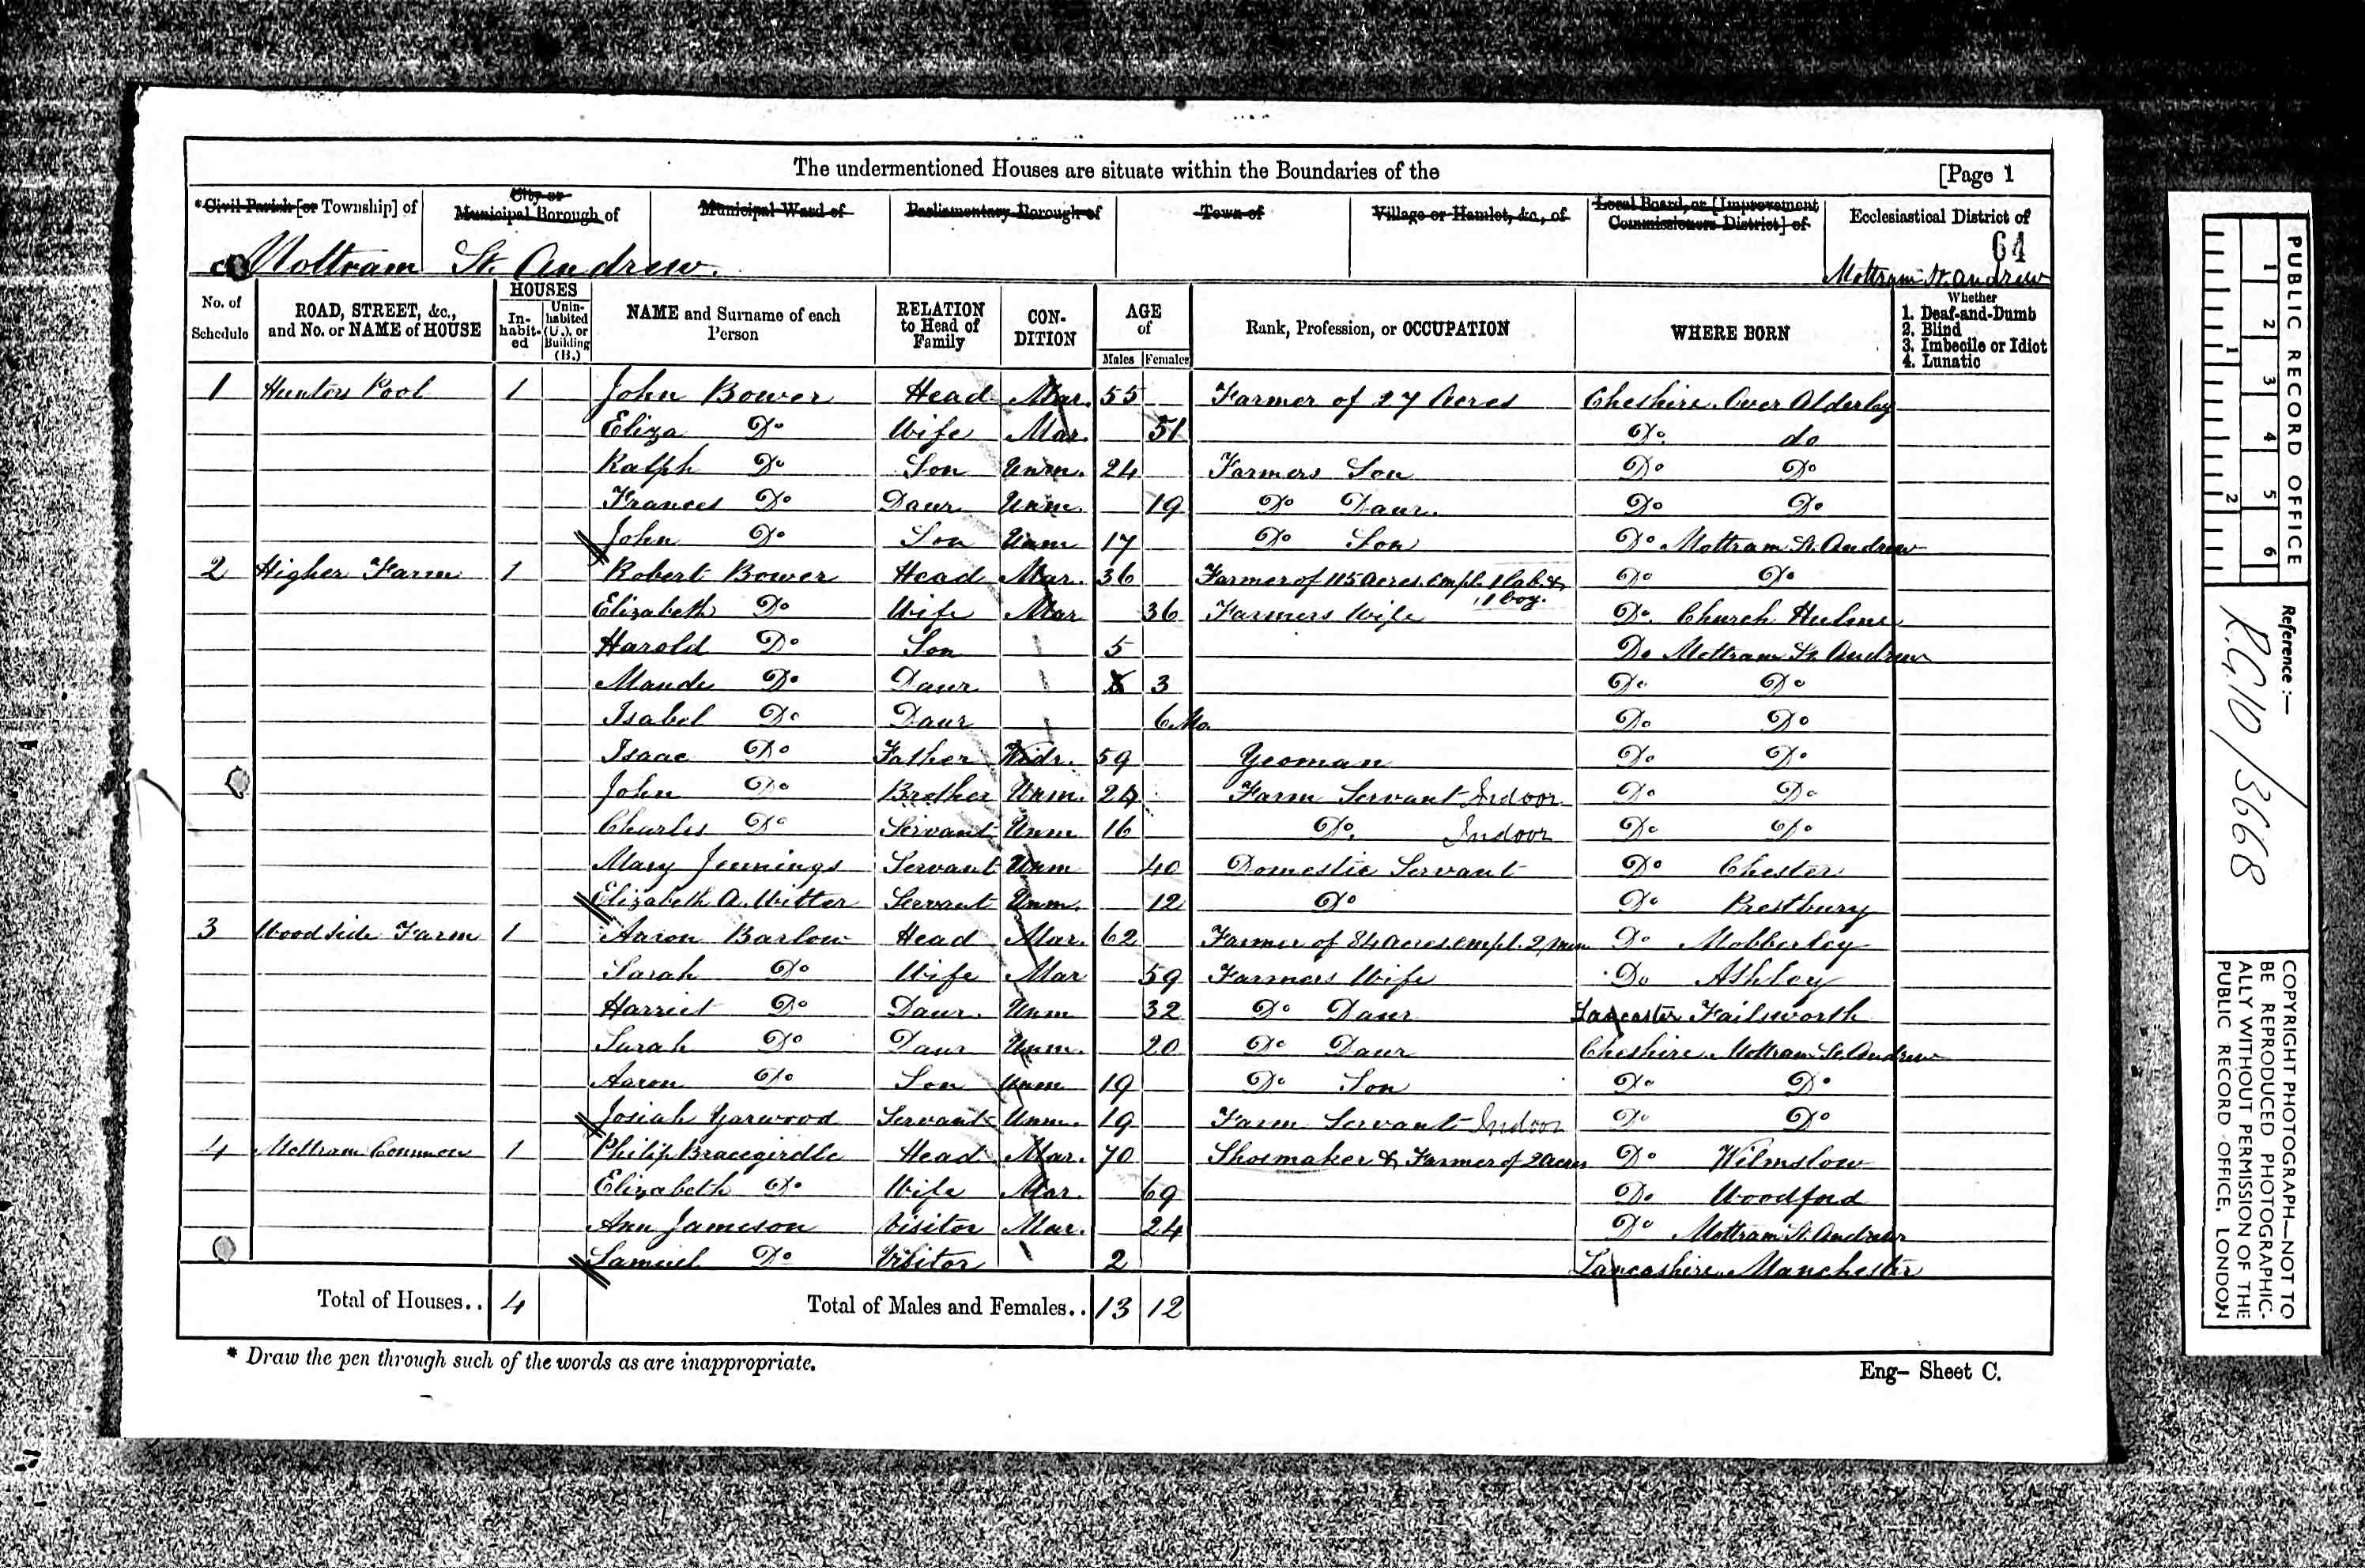 The undermentioned Houses are situate within the Boundaries of the [Page 1
*Civil Parish [or Township] of City or Municipal Borough of Municipal Ward of Parliamentary Borough of Town of Village or Hamlet, &c., of Local Board, or [Improvement Commissioners District] of Ecclesiastical District of
64
Mottram St. Andrew. Mottram St. Andrew
No. of Schedule ROAD, STREET, &c., and No. or NAME of HOUSE HOUSES Inhabited Uninhabited (U.), or Building (B.) NAME and Surname of each Person RELATION to Head of Family CONDITION AGE of Males Females Rank, Profession, or OCCUPATION WHERE BORN Whether 1. Deaf-and-Dumb 2. Blind 3. Imbecile or Idiot 4. Lunatic
1 Hunters Pool 1 John Bower Head Mar. 55 Farmer of 27 Acres Cheshire Over Alderley
Eliza Do Wife Mar. 51 Do. do
Ralph Do Son Unm. 24 Farmers Son Do Do
Frances Do Daur Unm. 19 Do Daur. Do Do
John Do Son Unm 17 Do Son Do Mottram St. Andrew
2 Higher Farm 1 Robert Bower Head Mar. 36 Farmer of 115 acres. empl. 1 lab. & 1 boy. Do Do
Elizabeth Do Wife Mar 36 Farmers Wife Do. Church Hulme
Harold Do Son 5 Do Mottram St. Andrew
Maude Do Daur 3 Do Do
Isabel Do Daur 6 Mo. Do Do
Isaac Do Father Widr. 59 Yeoman Do Do
John Do Brother Unm. 24 Farm Servant Indoor Do Do
Charles Do Servant Unm 16 Do. Indoor Do Do
Mary Jennings Servant Unm 40 Domestic Servant Do Chester
Elizabeth A. Witter Servant Unm. 12 Do Do Prestbury
3 Woodside Farm 1 Aaron Barlow Head Mar. 62 Farmer of 84 acres. empl. 2 men Do Mobberley
Sarah Do Wife Mar 59 Farmers Wife Do Ashley
Harriet Do Daur. Unm 32 Do Daur Lancaster Failsworth
Sarah Do Daur Unm. 20 Do Daur Cheshire Mottram St. Andrew
Aaron Do Son Unm 19 Do Son Do Do
Josiah Yarwood Servant Unm. 19 Farm Servant Indoor Do Do
4 Mottram Common 1 Philip Bracegirdle Head Mar. 70 Shoemaker & Farmer of 2 acres Do Wilmslow
Elizabeth Do Wife Mar. 69 Do Woodford
Ann Jameson Visitor Mar. 24 Do Mottram St. Andrew
Samuel Do Visitor 2 Lancashire Manchester
Total of Houses.. 4 Total of Males and Females.. 13 12
* Draw the pen through such of the words as are inappropriate.
Eng— Sheet C.
PUBLIC RECORD OFFICE
1 2 3 4 5 6
1 2
Reference :—
R.G. 10 / 3668
COPYRIGHT PHOTOGRAPH—NOT TO
BE REPRODUCED PHOTOGRAPHIC-
ALLY WITHOUT PERMISSION OF THE
PUBLIC RECORD OFFICE, LONDON